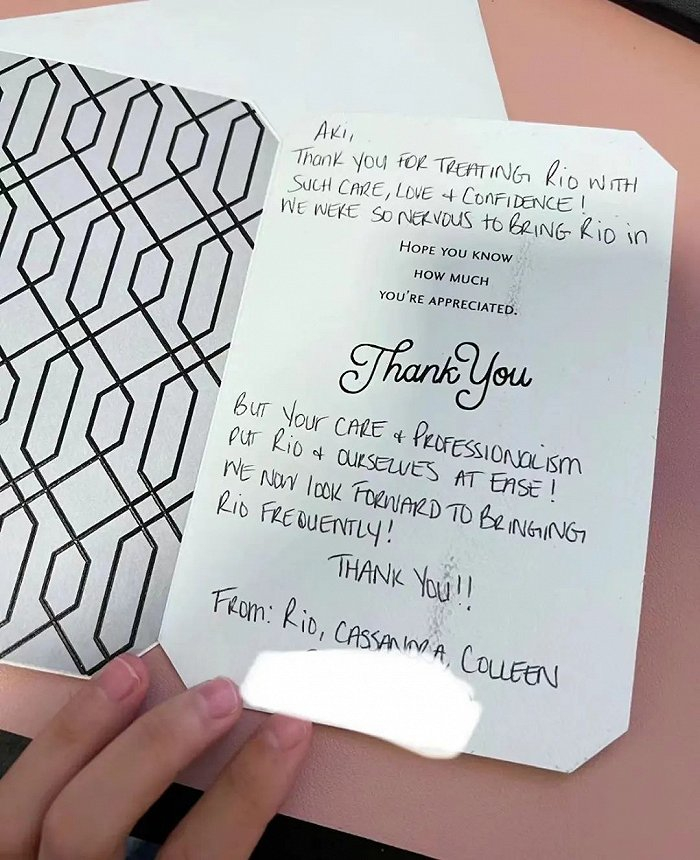 AKi,
THANK YOU FOR TREATING RiO WiTH
SUCH CARE, LOVE + CONFIDENCE!
WE WERE SO NERVOUS TO BRING RiO in
HOPE YOU KNOW
HOW MUCH
YOU'RE APPRECIATED.
Thank You
BUT YOUR CARE + PROFESSIONALISM
PUT RiO + OURSELVES AT EASE!
WE NOW LOOK FORWARD TO BRINGING
RiO FREQUENTLY!
THANK YOU!!
FROM: RiO, CASSANDRA, COLLEEN